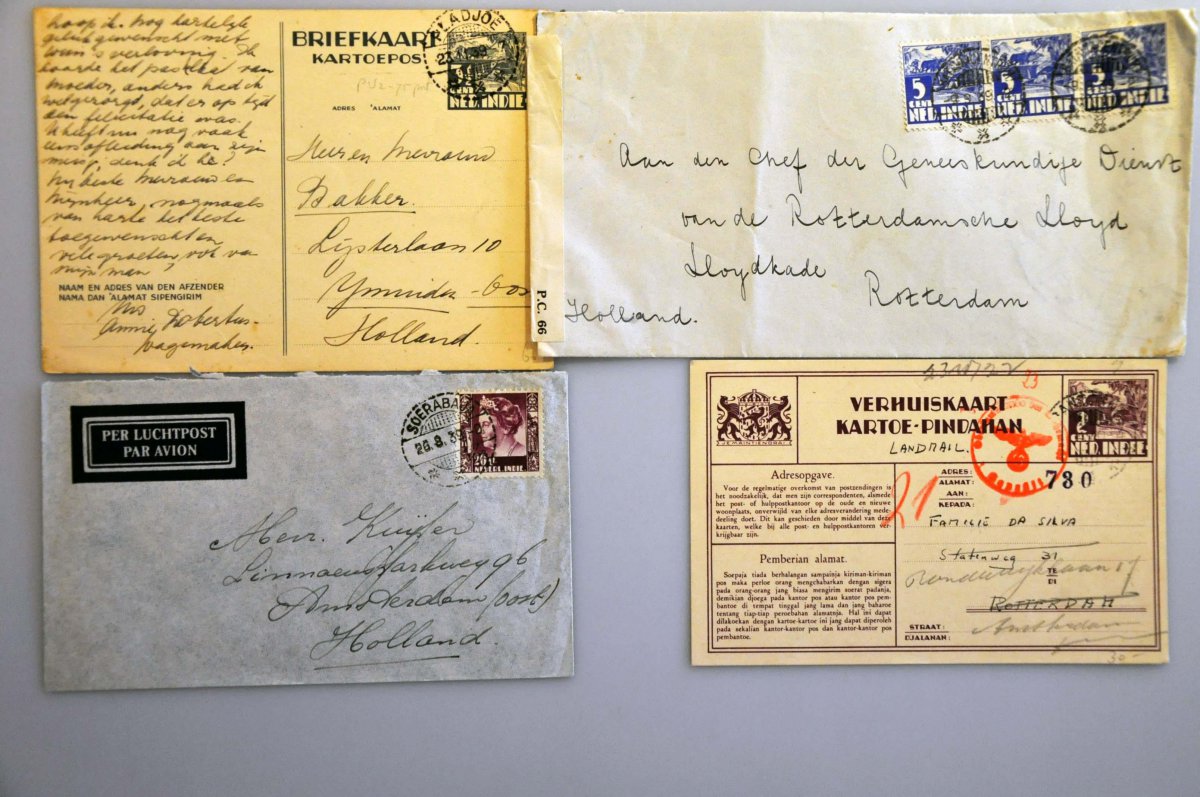 hoop ik nog hartelijk
geluk gewenscht met
Wim's verlooving. Ik
hoorde het pas van
moeder, anders had ik
wel gezorgd, dat er op tijd
een felicitatie was.
U heeft nu nog vaak
eens afleiding aan zijn
meisje, denk ik hè?
Nu beste Mevrouw en
Mijnheer, nogmaals
van harte het beste
toegewenscht en
vele groeten, ook van
mijn man!
NAAM EN ADRES VAN DEN AFZENDER
NAMA DAN 'ALAMAT SIPENGIRIM
Annie
Wagemaker.
BRIEFKAART
KARTOEPOS
ADRES 'ALAMAT
NED. INDIE
Heer en Mevrouw
Bakker.
Lijsterlaan 10
Ymuiden - Oost
Holland.
P.C. 66
5 CENT NED. INDIE
5 CENT NED. INDIE
5 CENT NED. INDIE
Aan den Chef der Geneeskundige Dienst
van de Rotterdamsche Lloyd
Lloydkade
Rotterdam
Holland.
PER LUCHTPOST
PAR AVION
SOERABA
NEDERL. INDIE
Herr. Kuijfer
Linnaeusparkweg 96
Amsterdam (oost)
Holland.
JE MAINTIENDRAI
VERHUISKAART
KARTOE-PINDAHAN
LANDMAIL.
23
2 CENT
NED. INDIE
Adresopgave.
Voor de regelmatige overkomst van postzendingen is
het noodzakelijk, dat men zijn correspondenten, alsmede
het post- of hulppostkantoor op de oude en nieuwe
woonplaats, onverwijld van elke adresverandering mede-
deeling doet. Dit kan geschieden door middel van deze
kaarten, welke bij alle post- en hulppostkantoren ver-
krijgbaar zijn.
Pemberian alamat.
Soepaja tiada berhalangan sampainja kiriman-kiriman
pos maka perloe orang mengchabarkan dengan sigera
pada orang-orang jang biasa mengirim soerat padanja,
demikian djoega pada kantor pos atau kantor pos pem-
bantoe di tempat tinggal jang lama dan jang baharoe
tentang tiap-tiap peroebahan alamatnja. Hal ini dapat
dilakoekan dengan kartoe-kartoe ini jang dapat diperoleh
pada sekalian kantor-kantor pos dan kantor-kantor pos
pembantoe.
21
ADRES:
ALAMAT:
AAN:
KEPADA:
780
FAMILIE DA SILVA
Statenweg 31
TE
DI
ROTTERDAM
Amsterdam
STRAAT:
DJALANAN:
30-